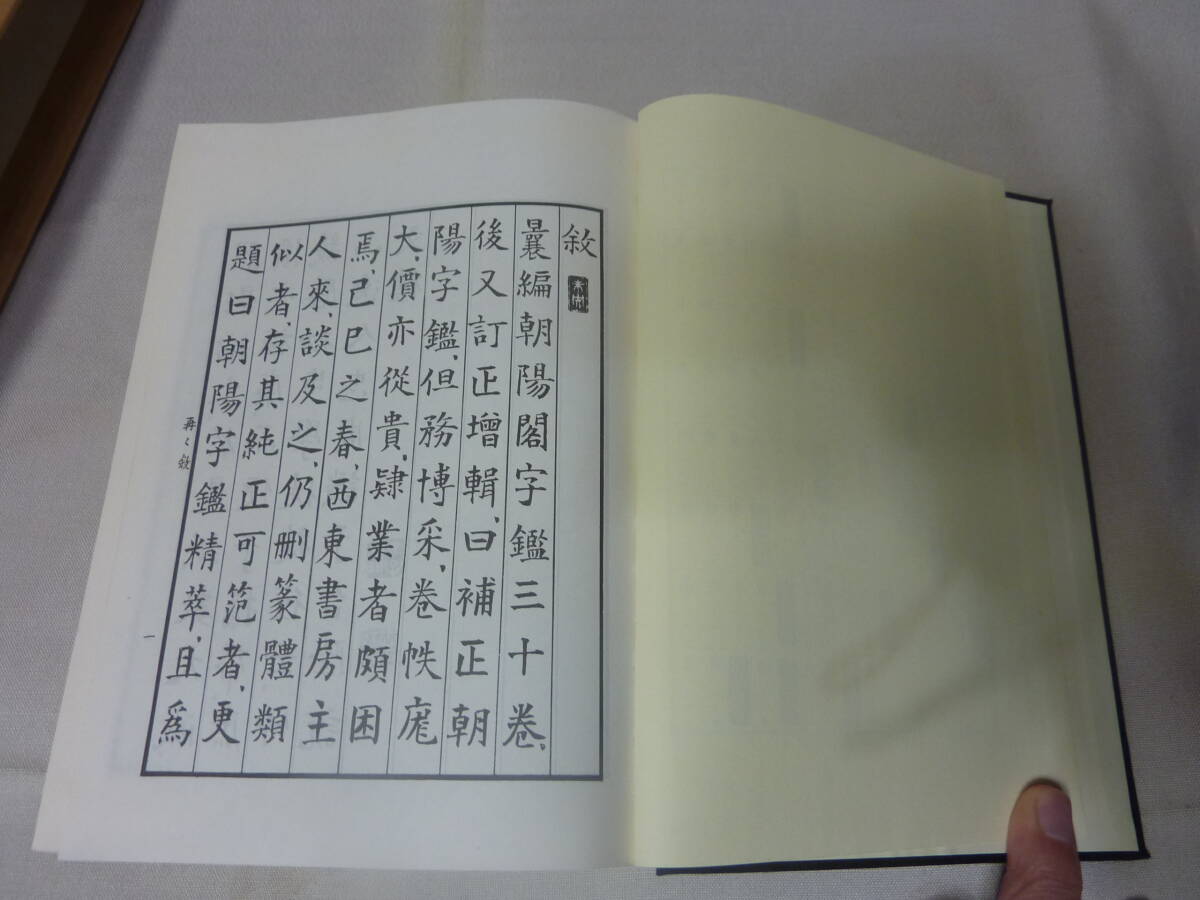 敘
曩編朝陽閣字鑑三十卷、
後又訂正增輯、曰補正朝
陽字鑑、但務博采、卷帙庬
大、價亦從貴、肄業者頗困
焉、己巳之春、西東書房主
人來、談及之、仍刪篆體類
似者、存其純正可范者、更
題曰朝陽字鑑精萃、且為
再〻敘
一